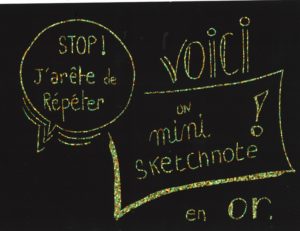 STOP!
J'arête de
Répéter
Voici
un
mini
sketchnote !
en or.